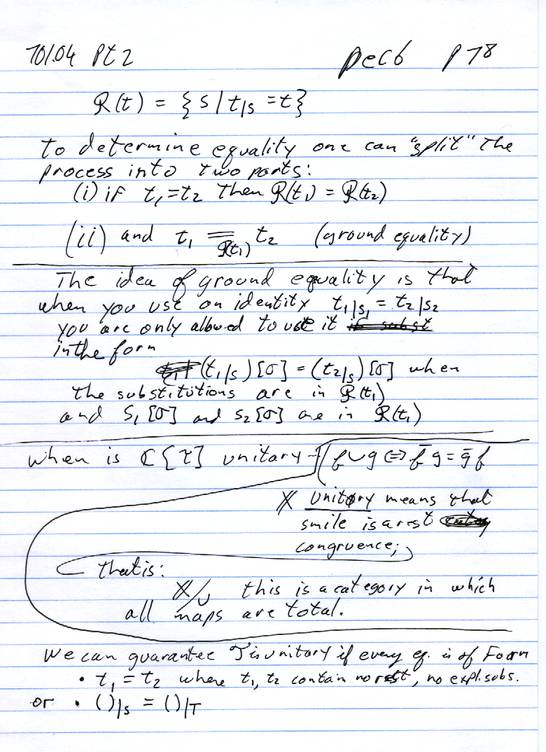 701.04 Pt 2 Dec 6 p 78
R(t) = { s | t|s = t }
To determine equality one can "split" the
process into two parts:
(i) if t₁ = t₂ then R(t₁) = R(t₂)
(ii) and t₁ =_R(t₁) t₂ (ground equality)
The idea of ground equality is that
when you use an identity t₁|s₁ = t₂|s₂
you are only allowed to use it
in the form
(t₁|s)[σ] = (t₂|s)[σ] when
the substitutions are in R(t₁)
and s₁[σ] and s₂[σ] are in R(t₁)
When is C[τ] unitary f ∪ g ⇔ f̄ g = ḡ f
X unitary means that
smile is a rest
congruence;
that is:
X/∪ this is a category in which
all maps are total.
We can guarantee T is unitary if every eq. is of Form
• t₁ = t₂ where t₁, t₂ contain no rest, no expl. subs.
or • ( )|s = ( )|T